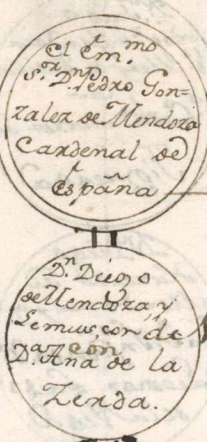 El Em.^mo
S.^or D.^n Pedro Gon=
zalez de Mendoza
Cardenal de
España
D.^n Diego
de Mendoza, y
Lemus, con
D.^a Ana de la
Zerda.